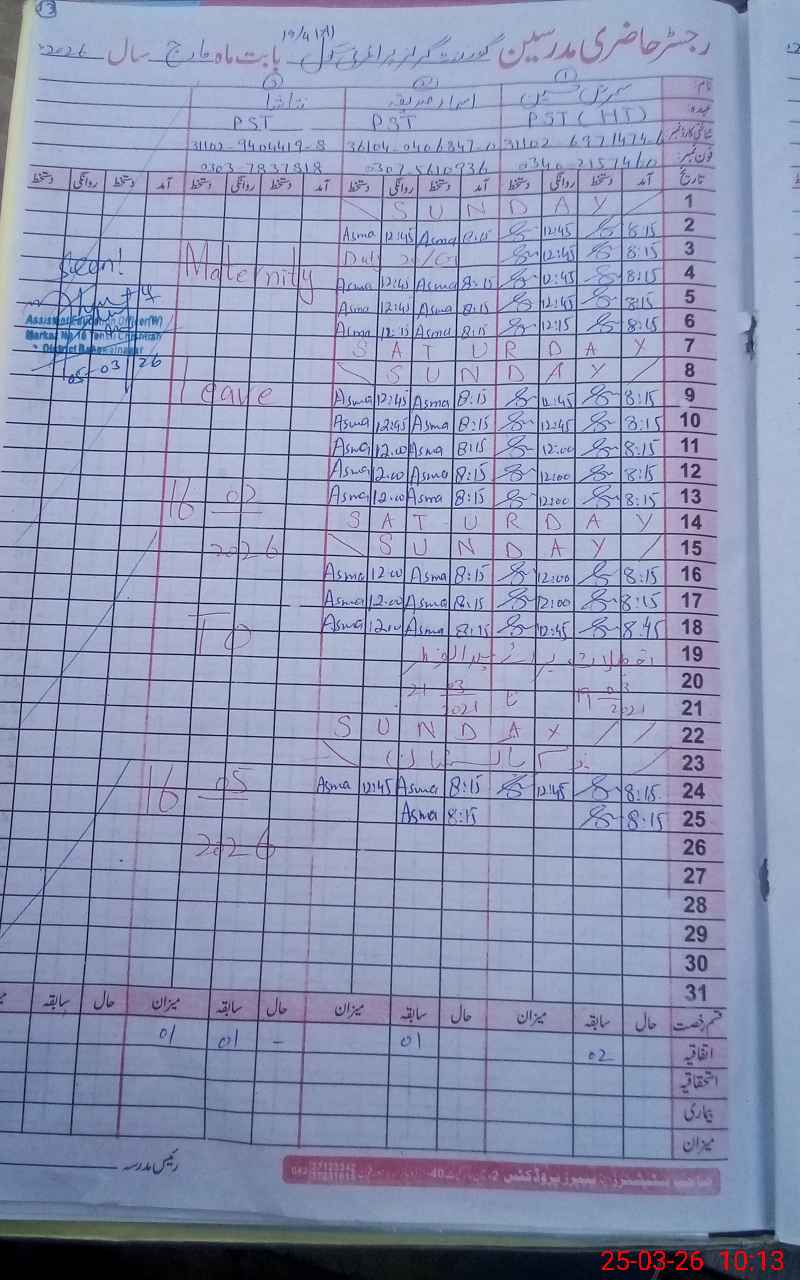 13
19/4 1(A)
رجسٹر حاضری مدرسین گورنمنٹ گرلز پرائمری سکول بابت ماہ مارچ سال 2026
نام: ① ② ③ نتاشا
عہدہ: PST (HT) PST PST
شناختی کارڈ نمبر 31102-6971474-6 36104-0406847-0 31102-9404419-8
فون نمبر: 0340-2157460 0307-5610936 0303-7837818
تاریخ آمد دستخط روانگی دستخط آمد دستخط روانگی دستخط آمد دستخط روانگی دستخط آمد دستخط روانگی دستخط
1 SUNDAY
2 8:15 12:45 8:15 Asma 12:45 Asma
3 8:15 12:45 Duty
4 8:15 12:45 8:15 Asma 12:45 Asma
5 8:15 12:45 8:15 Asma 12:45 Asma
6 8:15 12:15 8:15 Asma 12:15 Asma
7 SATURDAY
8 SUNDAY
9 8:15 12:45 8:15 Asma 12:45 Asma
10 8:15 12:45 8:15 Asma 12:45 Asma
11 8:15 12:00 8:15 Asma 12:00 Asma
12 8:15 12:00 8:15 Asma 12:00 Asma
13 8:15 12:00 8:15 Asma 12:00 Asma
14 SATURDAY
15 SUNDAY
16 8:15 12:00 8:15 Asma 12:00 Asma
17 8:15 12:00 8:15 Asma 12:00 Asma
18 8:45 12:45 8:15 Asma 12:00 Asma
19
20 03 تا 21 03
21 2021 2021
22 SUNDAY
23
24 8:15 12:45 8:15 Asma 12:45 Asma
25 8:15 8:15 Asma
26
27
28
29
30
31
Maternity
Leave
16 02
2026
To
16 05
2026
Seen!
Assistant Education Officer(W)
District Bahawalnagar
05-03 26
قسم رخصت حال سابقہ میزان حال سابقہ میزان حال سابقہ میزان حال سابقہ
اتفاقیہ 02 01 - 01 01
استحقاقیہ
بیماری
میزان
رئیس مدرسہ
25-03-26 10:13